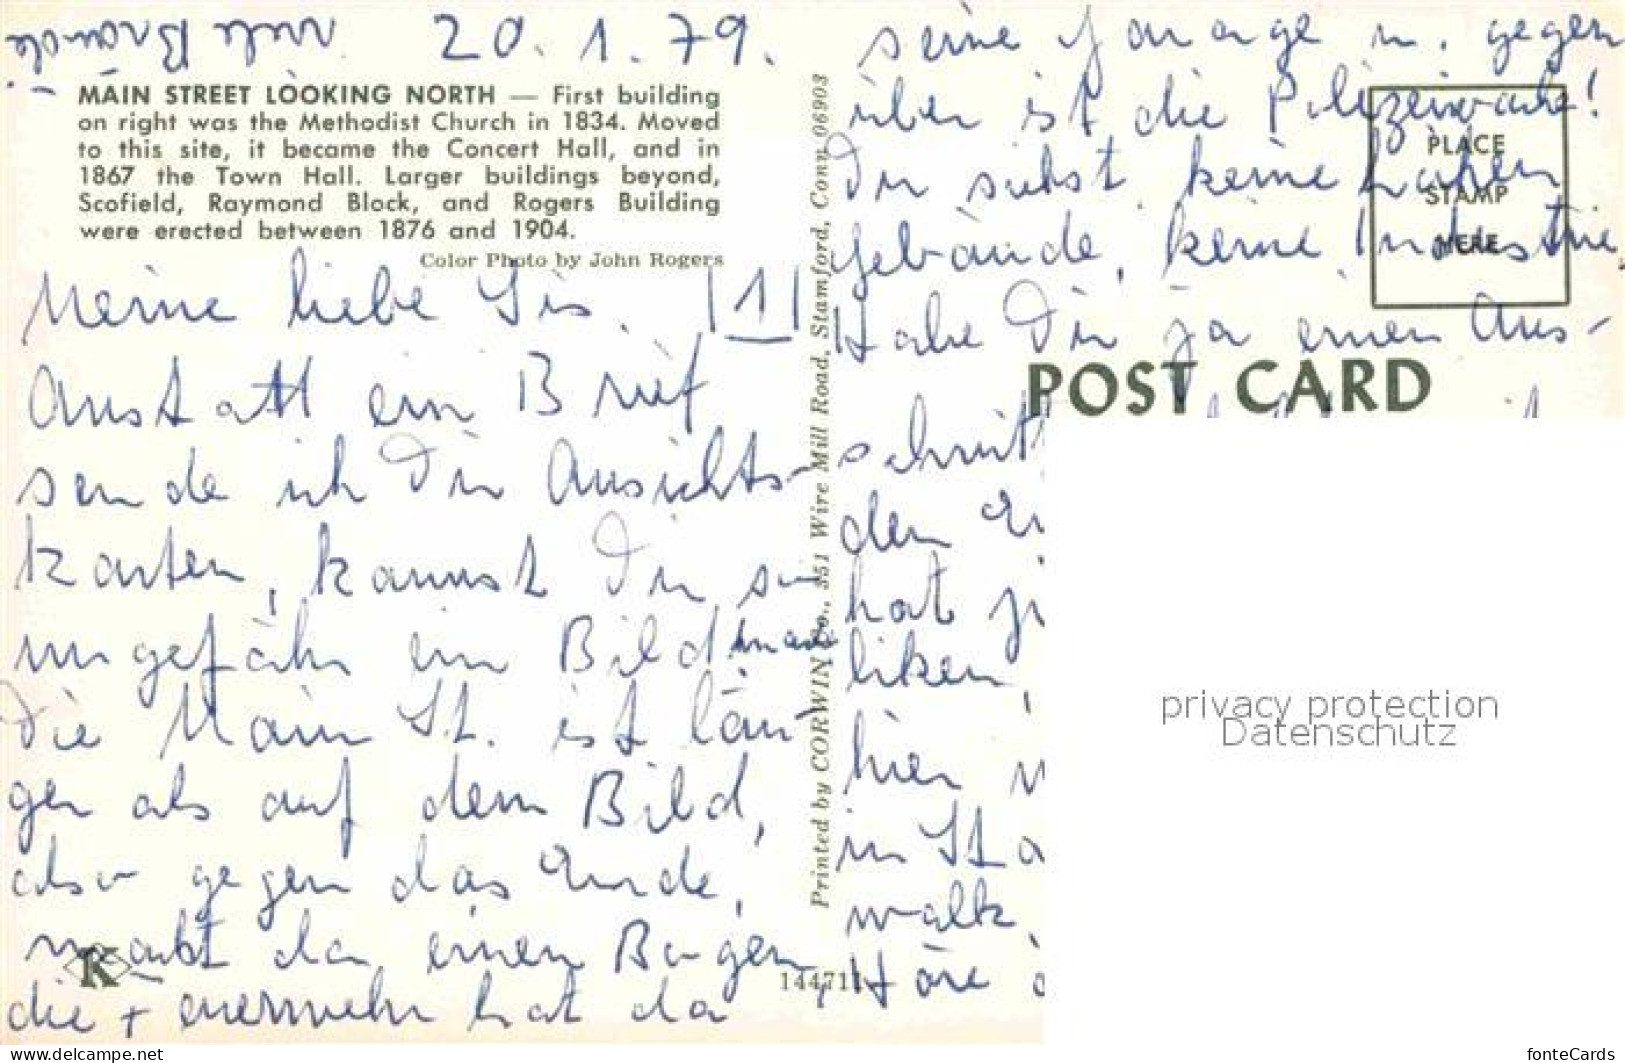 20. 1. 79.
viele Brände
MAIN STREET LOOKING NORTH — First building
on right was the Methodist Church in 1834. Moved
to this site, it became the Concert Hall, and in
1867 the Town Hall. Larger buildings beyond,
Scofield, Raymond Block, and Rogers Building
were erected between 1876 and 1904.
Color Photo by John Rogers
Meine liebe Sis. |1|
Anstatt ein Brief
sende ich Dir Ansichts-
karten, kannst Du so
ungefähr ein Bild machen
Die Main St. ist län-
ger als auf dem Bild,
also gegen das Ende,
macht da einen Bogen,
die Feuerwehr hat da
Printed by CORWIN Co., 351 Wire Mill Road, Stamford, Conn 06903
K
144717
seine Garage u. gegen
über ist die Polizeiwache!
Du siehst, keine hohen
Gebäude, keine Industrie,
Habe Dir ja einen Aus-
schnitt
den
hat
liken,
hier
in
walk,
Höre
PLACE
STAMP
HERE
POST CARD
privacy protection
Datenschutz
www.delcampe.net
fonteCards